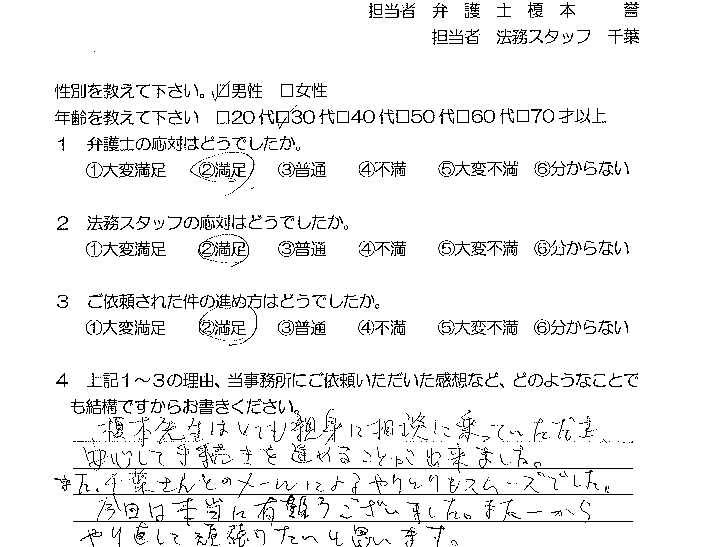 担当者 弁 護 士 榎 本 誉
担当者 法務スタッフ 千葉
性別を教えて下さい。☑男性 □女性
年齢を教えて下さい □20代☑30代□40代□50代□60代□70才以上
1 弁護士の応対はどうでしたか。
①大変満足 ②満足 ③普通 ④不満 ⑤大変不満 ⑥分からない
2 法務スタッフの応対はどうでしたか。
①大変満足 ②満足 ③普通 ④不満 ⑤大変不満 ⑥分からない
3 ご依頼された件の進め方はどうでしたか。
①大変満足 ②満足 ③普通 ④不満 ⑤大変不満 ⑥分からない
4 上記1～3の理由、当事務所にご依頼いただいた感想など、どのようなことで
も結構ですからお書きください。
榎本先生はとても親身に相談に乗っていただき、
安心して手続きを進めることが出来ました。
また、千葉さんとのメールによるやりとりもスムーズでした。
今回は本当に有難うございました。また一から
やり直して頑張りたいと思います。